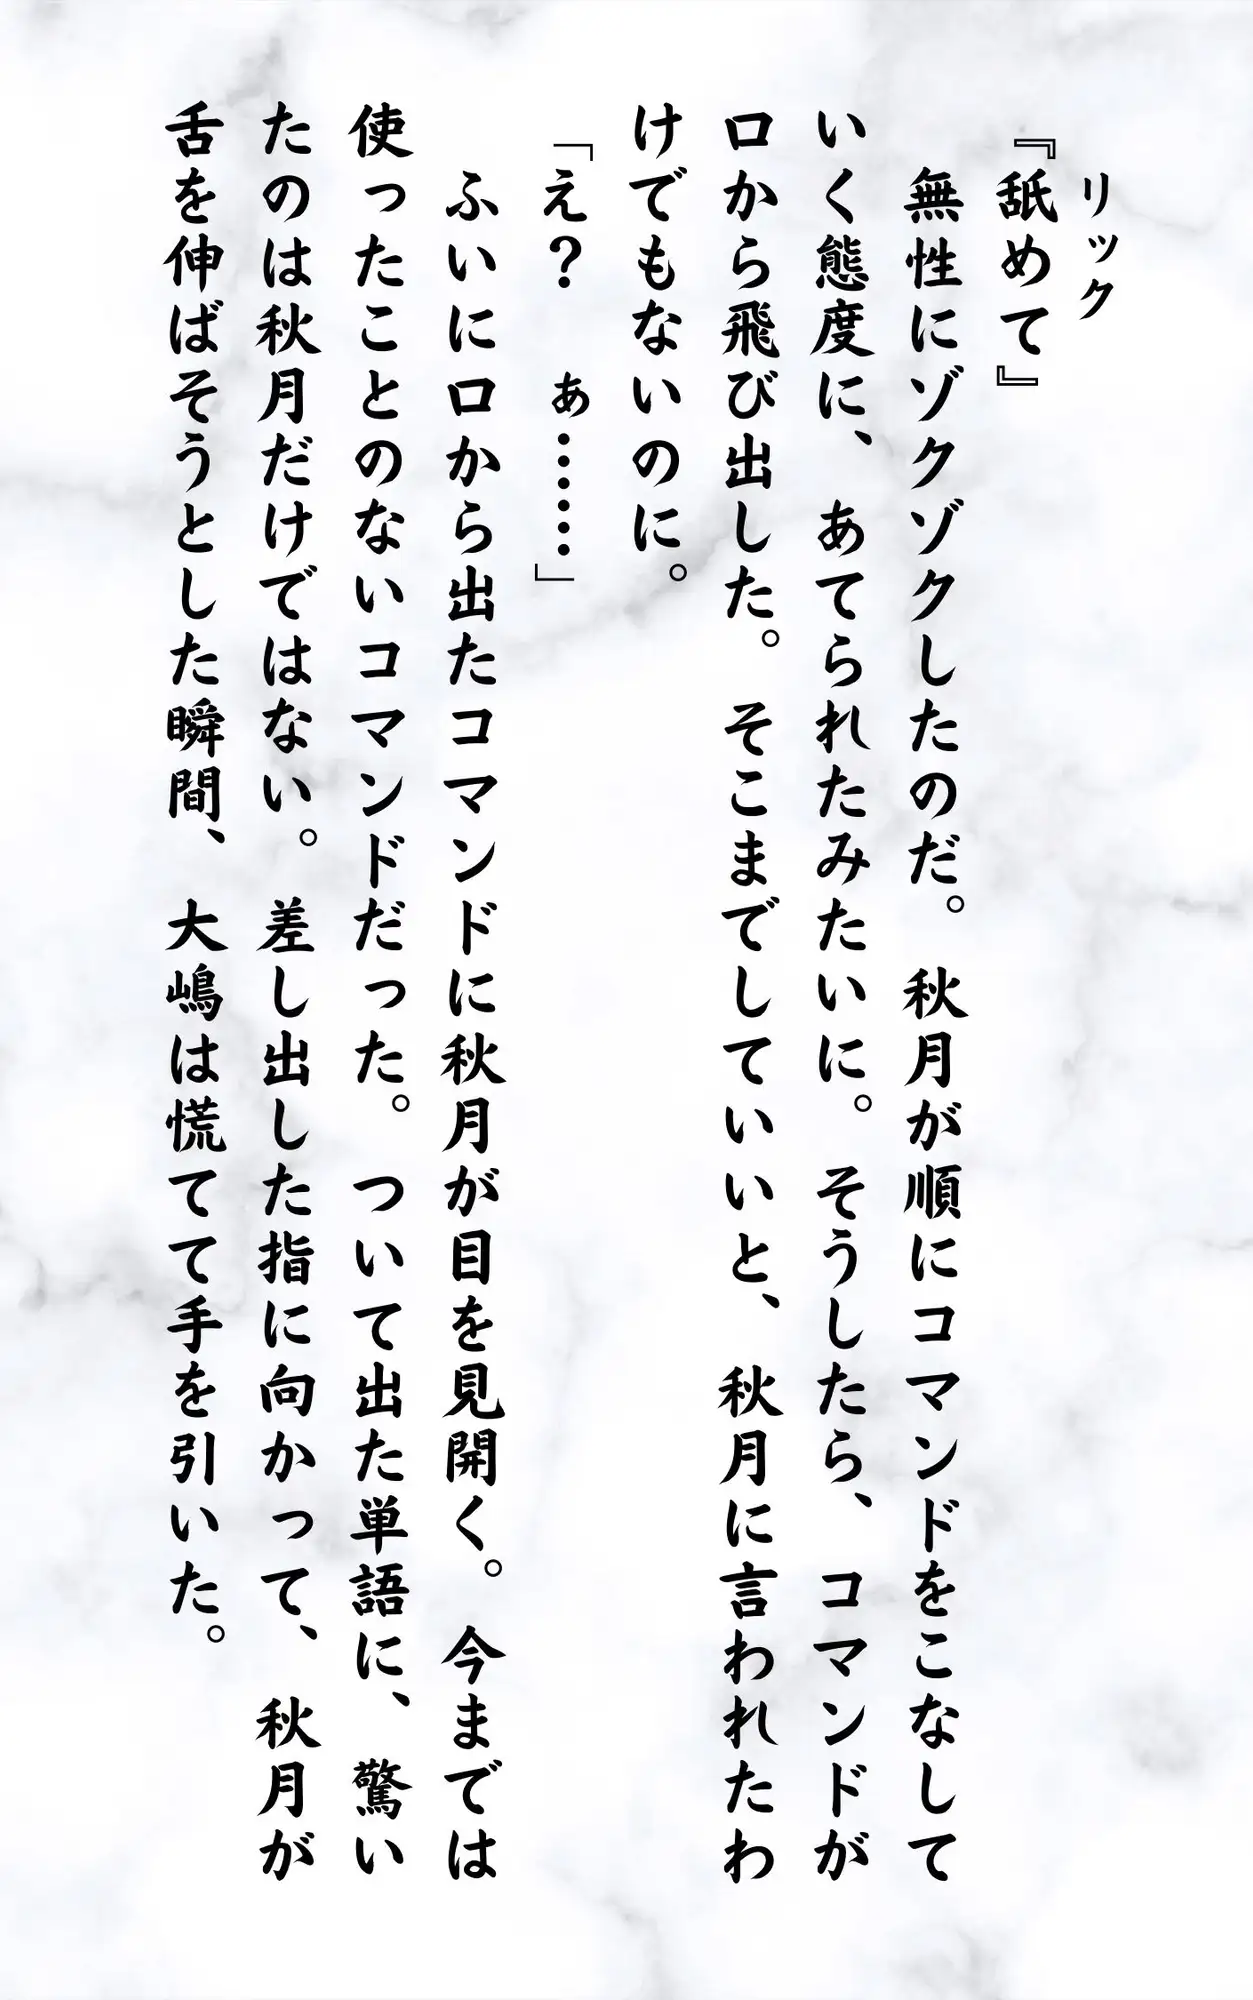 リック
『舐めて』
　無性にゾクゾクしたのだ。秋月が順にコマンドをこなして
いく態度に、あてられたみたいに。そうしたら、コマンドが
口から飛び出した。そこまでしていいと、秋月に言われたわ
けでもないのに。
「え？　ぁ……」
　ふいに口から出たコマンドに秋月が目を見開く。今までは
使ったことのないコマンドだった。ついて出た単語に、驚い
たのは秋月だけではない。差し出した指に向かって、秋月が
舌を伸ばそうとした瞬間、大嶋は慌てて手を引いた。